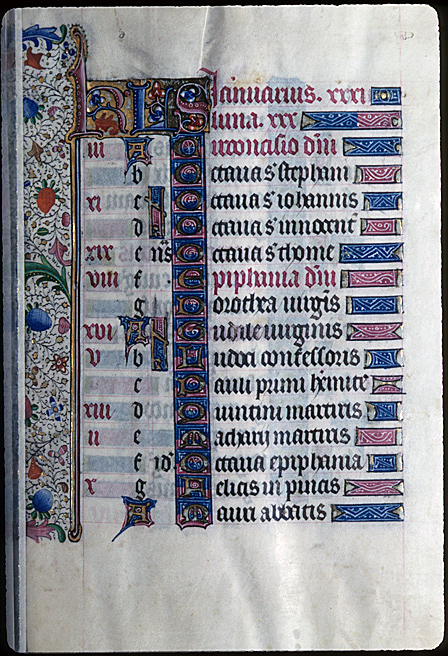 KLS Januarius. xxxi
luna. xxx
iii A Circoncisio dñi
b Octaua s stephani
xi c Octaua s iohannis
d Octaua s innocent
xix e ns Octaua s thome
viii f Epiphania dñi
g Dorothea uirgis
xvi A uirginis
v b confessoris
c Pauli primi
xiii d Quintini martiris
ii e Zacharij martiris
f id Octaua epiphania
x g Felicis in pincis
A Mauri abbatis